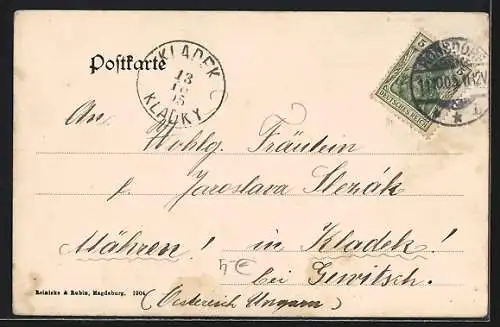 Postkarte
KLADEK
13
10
KLADKY
DEUTSCHES REICH
An Wohlg. Fräulein
Jaroslava Slezák
Mähren! in Kladek!
bei Gewitsch.
(Oesterreich Ungarn)
Reinicke & Rubin, Magdeburg. 1904